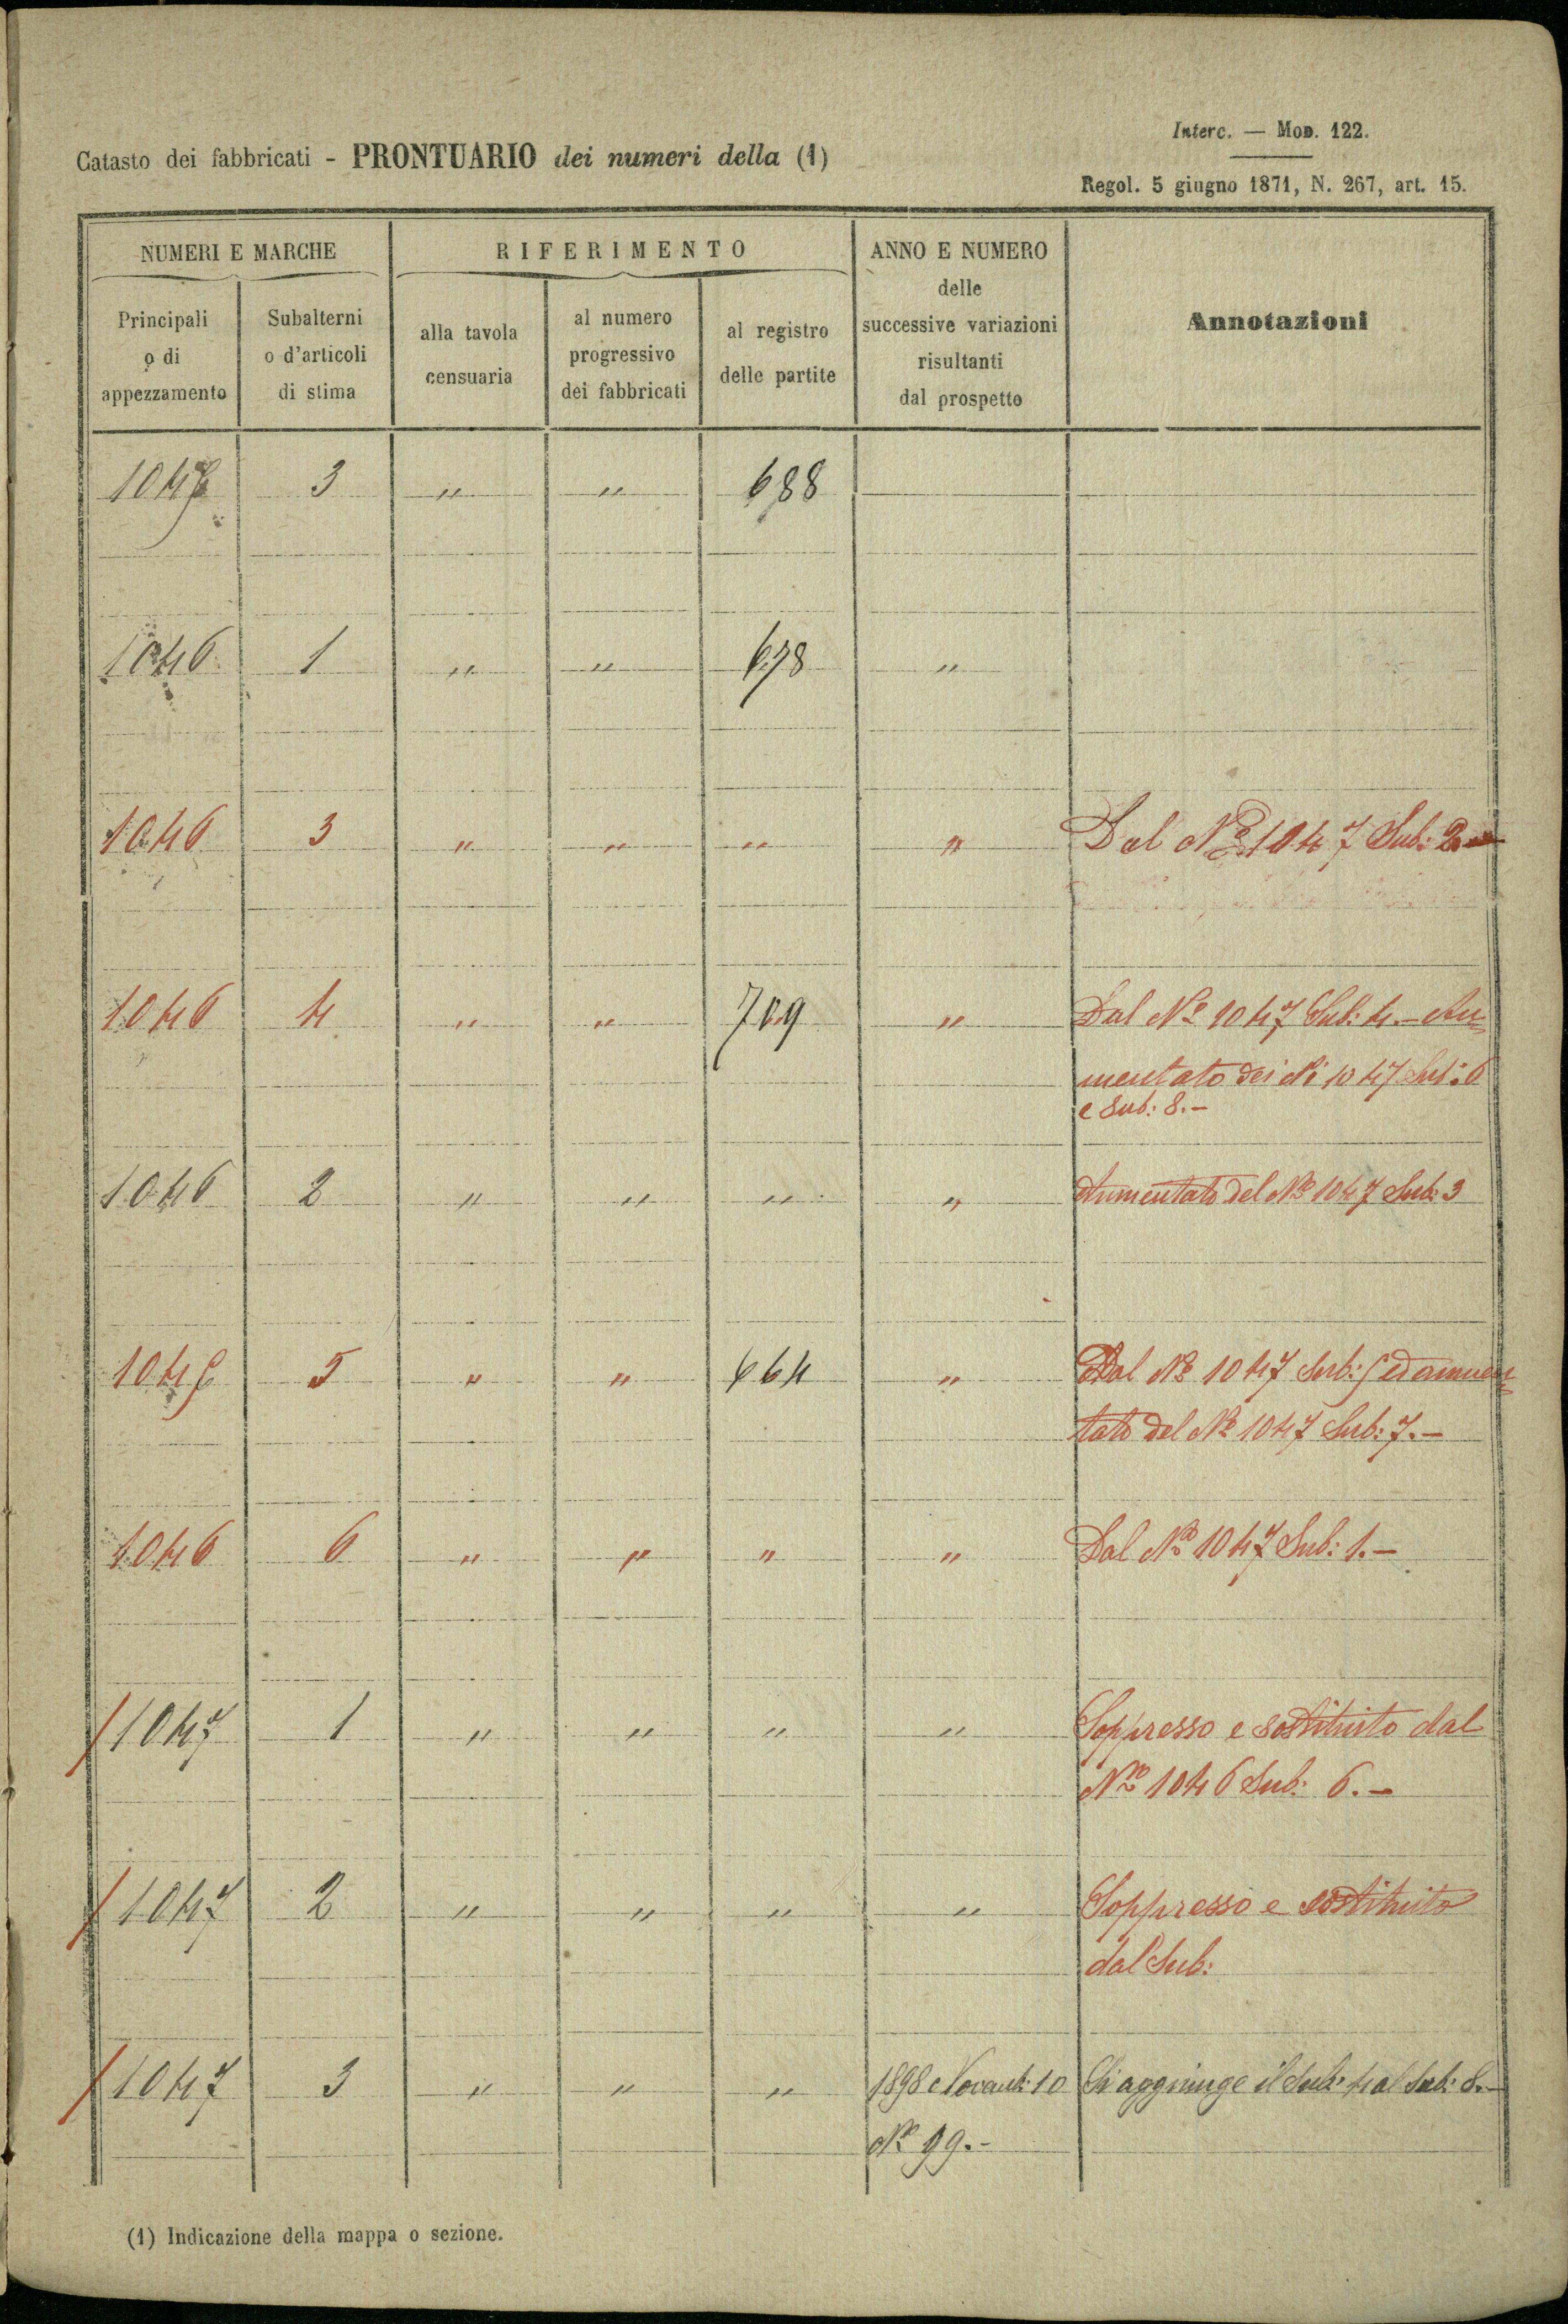 Interc. — MOD. 122.
Catasto dei fabbricati - PRONTUARIO dei numeri della (1)
Regol. 5 giugno 1871, N. 267, art. 15.
NUMERI E MARCHE
RIFERIMENTO
ANNO E NUMERO
delle
successive variazioni
risultanti
dal prospetto
Annotazioni
Principali
o di
appezzamento
Subalterni
o d'articoli
di stima
alla tavola
censuaria
al numero
progressivo
dei fabbricati
al registro
delle partite
3 " " 688
1046 1 " " 678 "
1046 3 " " " " Dal No 1047 Sub: 2.
1046 4 " " 709 " Dal No 1047 Sub: 4.- Au=
mentato dei Ni 1047 Sub: 6
e Sub: 8.-
1046 2 " " " " Aumentato del No 1047 Sub: 3
5 " " 664 " Dal No 1047 Sub: ed aumen=
tato del No 1047 Sub: 7.-
1046 6 " " " " Dal No 1047 Sub: 1.-
/1047 1 " " " " Soppresso e sostituito dal
No 1046 Sub: 6.-
/1047 2 " " " " Soppresso e sostituito
dal Sub:
/1047 3 " " " 1898 10 Si aggiunge il Sub: 4 al Sub: 8.-
No 99.-
(1) Indicazione della mappa o sezione.